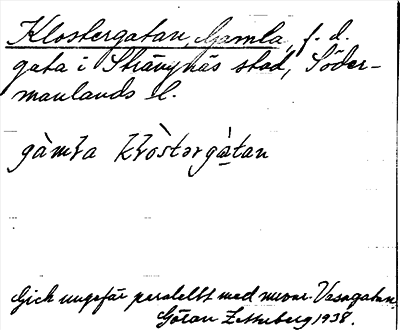 Klostergatan, Gamla, f. d.
gata i Strängnäs stad, Söder-
manlands l.
gàmɫa kɫòstərgàtan
Gick ungefär parallellt med nuvar. Vasagatan.
Göran Zetterberg 1938.